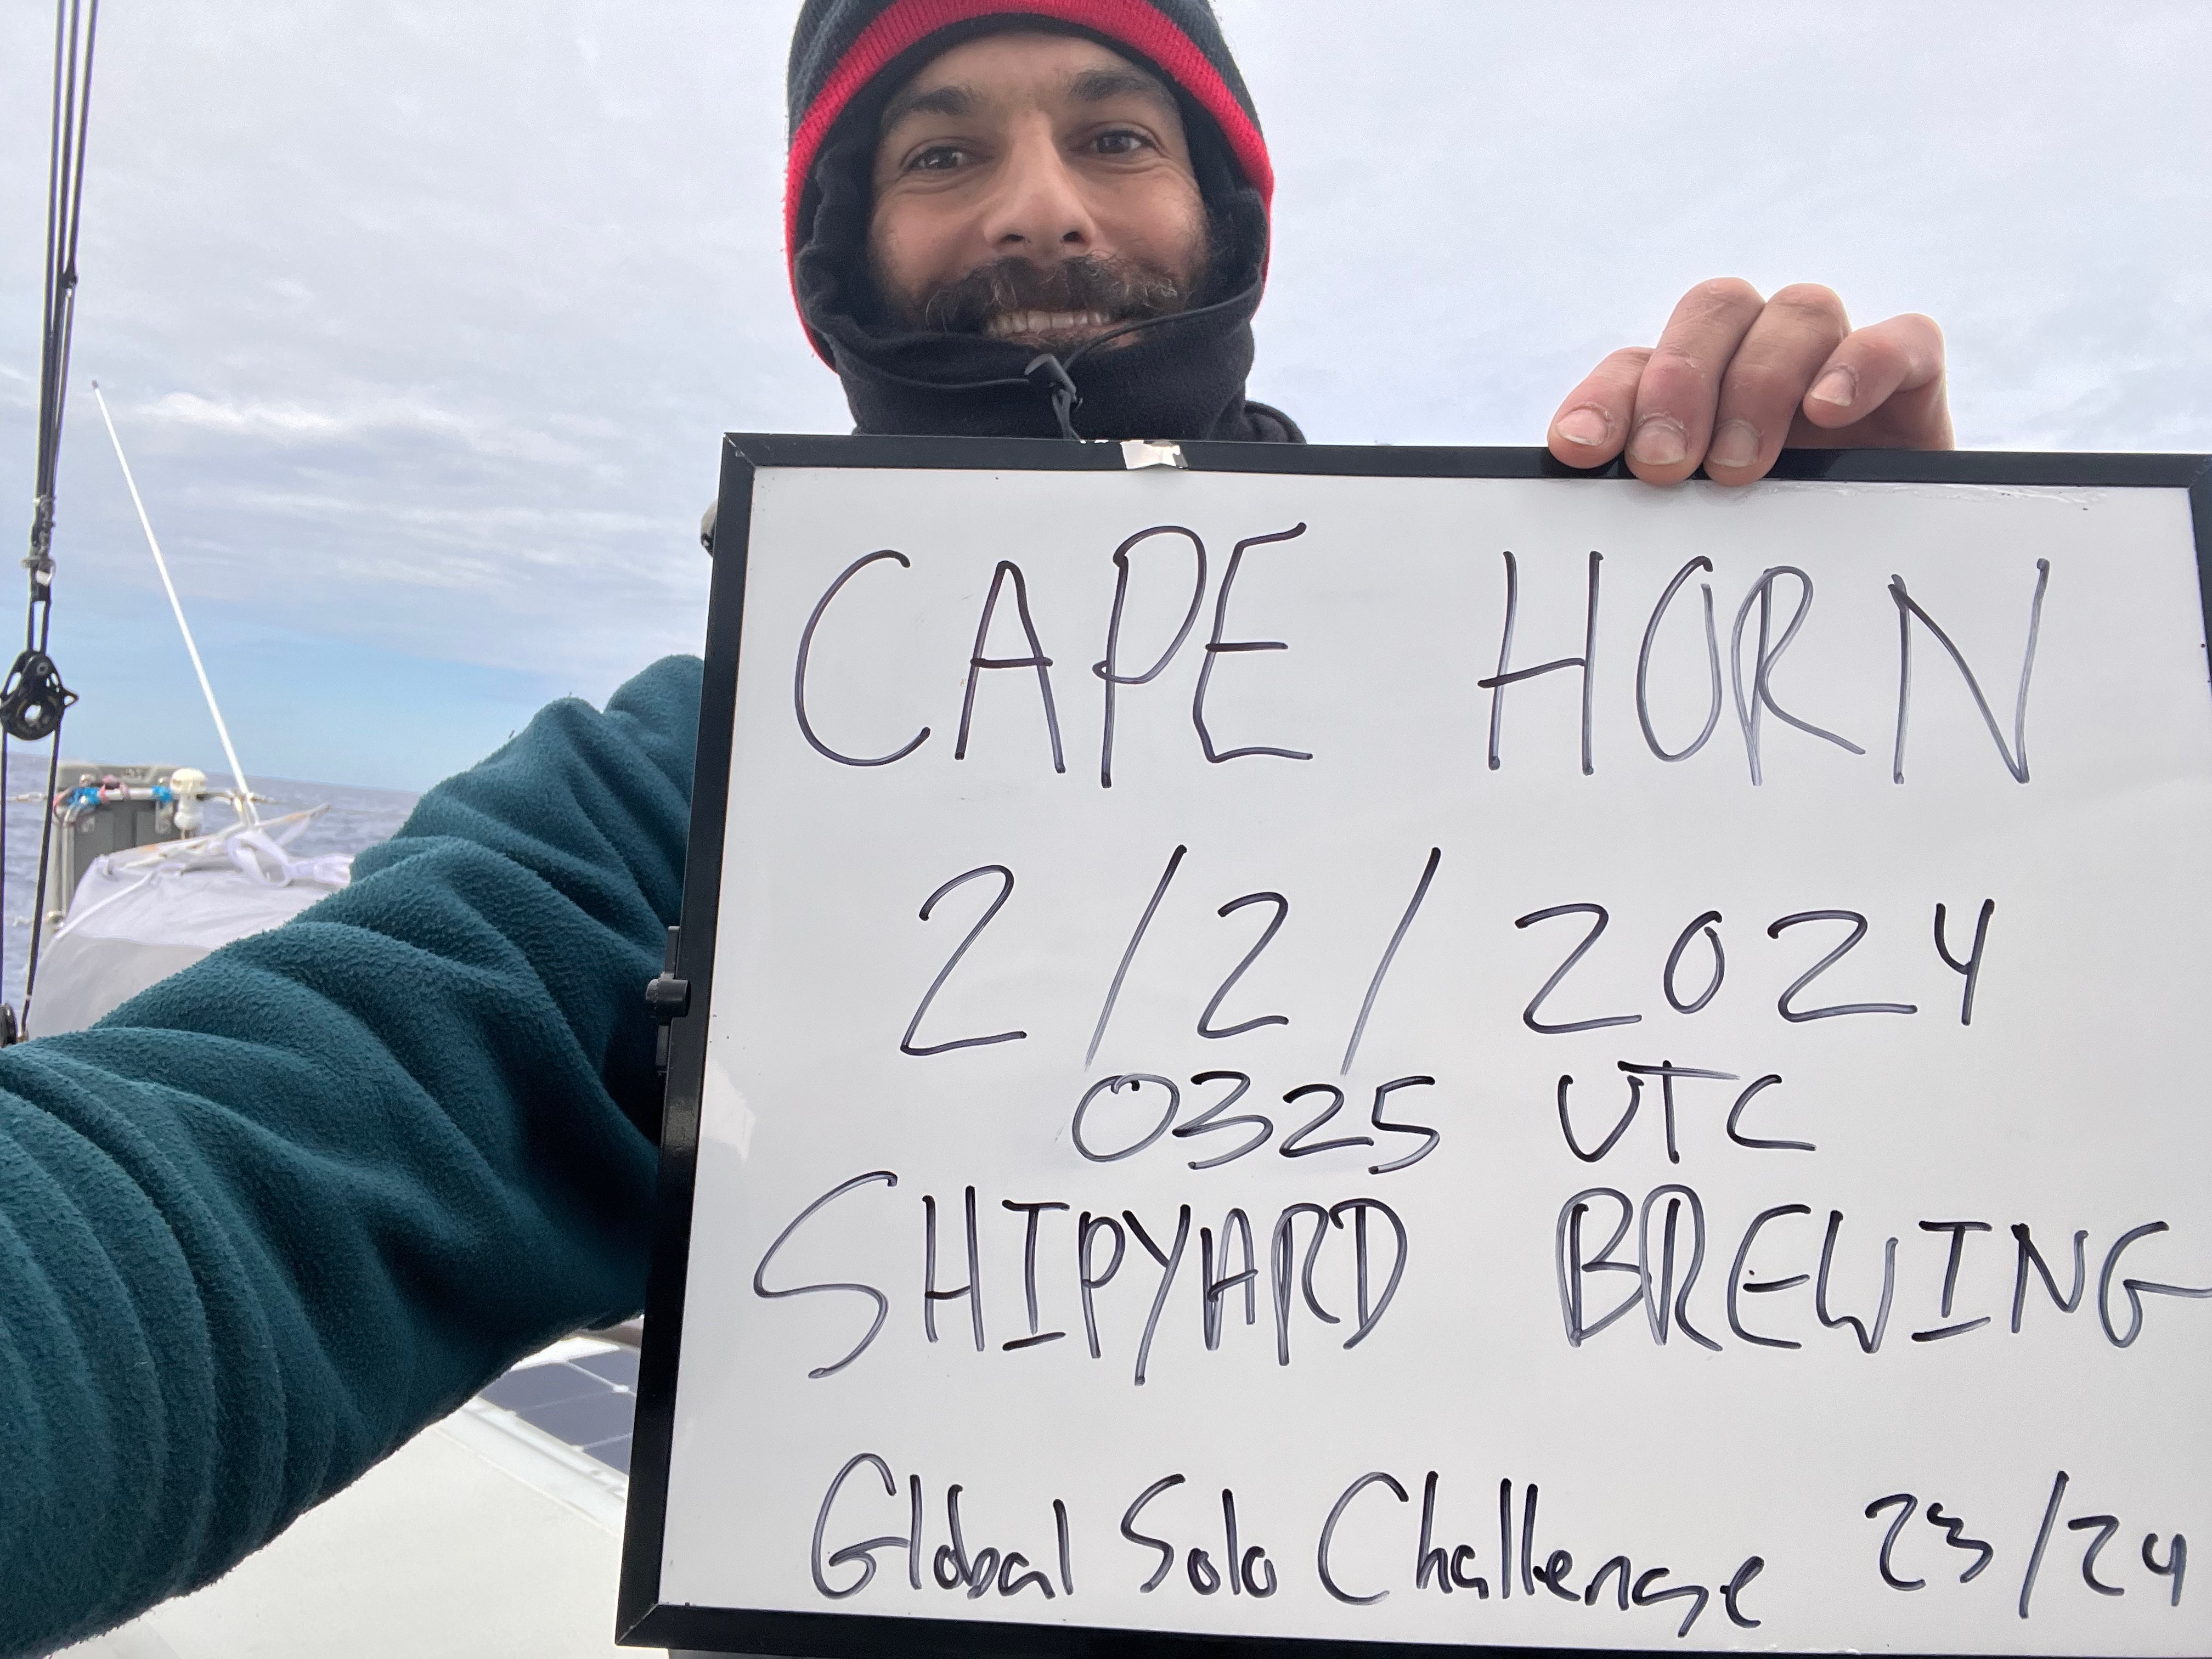 CAPE HORN
2/2/2024
0325 UTC
SHIPYARD BREWING
Global Solo Challenge 23/24